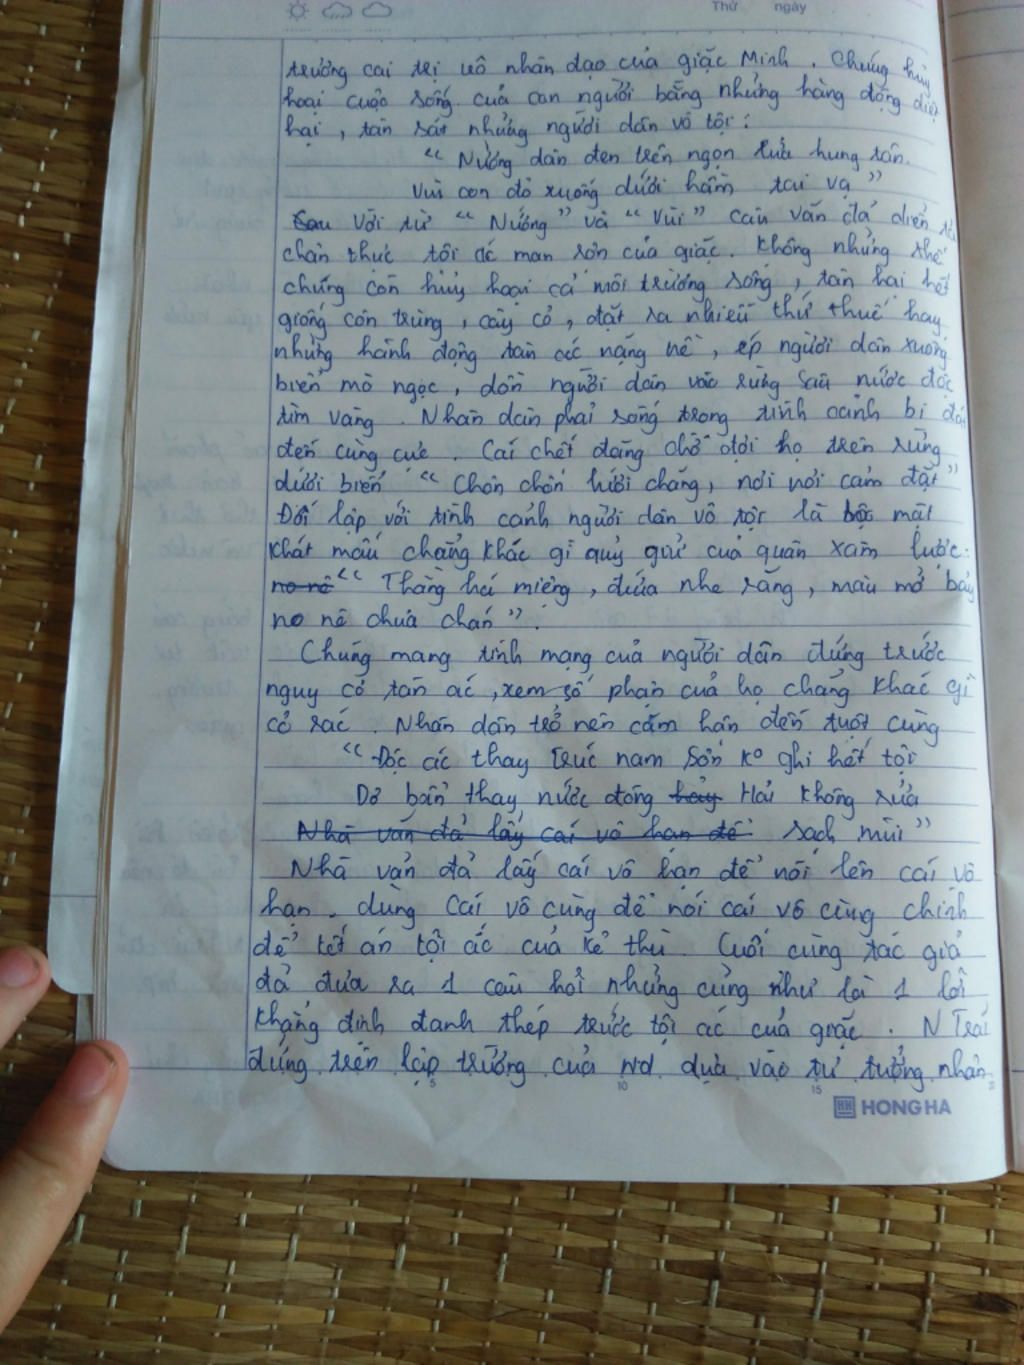 Thứ ngày
trương cai trị vô nhân đạo của giặc Minh. Chúng hủy
hoại cuộc sống của con người bằng những hàng động diệt
hại, tàn sát những người dân vô tội:
“ Nướng dân đen trên ngọn lửa hung tàn.
Vùi con đỏ xuống dưới hầm tai vạ ”
Sau Với từ “ Nướng ” và “ Vùi ” câu văn đã diễn tả
chân thực tội ác man rợn của giặc. Không những thế
chúng còn hủy hoại cả môi trường sống, tàn hại hết
giống côn trùng, cây cỏ, đặt ra nhiều thứ thuế hay
những hành động tàn ác nặng nề, ép người dân xuống
biển mò ngọc, dồn người dân vào rừng sâu nước độc
tìm vàng. Nhân dân phải sống trong tình cảnh bi đát
đến cùng cực. Cái chết đang chờ đợi họ trên rừng
dưới biển “ Chốn chốn lưới chăng, nơi nơi cạm đặt ”
Đối lập với tình cảnh người dân vô tội là bộ mặt
khát máu chẳng khác gì quỷ giữ của quân xâm lược:
no nê “ Thằng há miệng, đứa nhe răng, máu mỡ bấy
no nê chưa chán ”.
Chúng mang tính mạng của người dân đứng trước
nguy cơ tàn ác, xem số phận của họ chẳng khác gì
cỏ rác. Nhân dân trở nên căm hận đến tuột cùng
“ Độc ác thay Trúc nam Sơn ko ghi hết tội
Dơ bẩn thay nước đông hảy Hải không rửa
Nhà văn đã lấy cái vô hạn để sạch mùi ”
Nhà văn đã lấy cái vô hạn để nói lên cái vô
hạn. dùng cái vô cùng để nói cái vô cùng chính
để kết án tội ác của kẻ thù. Cuối cùng tác giả
đã đưa ra 1 câu hỏi nhưng cũng như là 1 lời
khẳng định đanh thép trước tội ác của giặc. N Trãi
đứng trên lập trường của nd dựa vào tư tưởng nhân
5 10 15
HONG HA